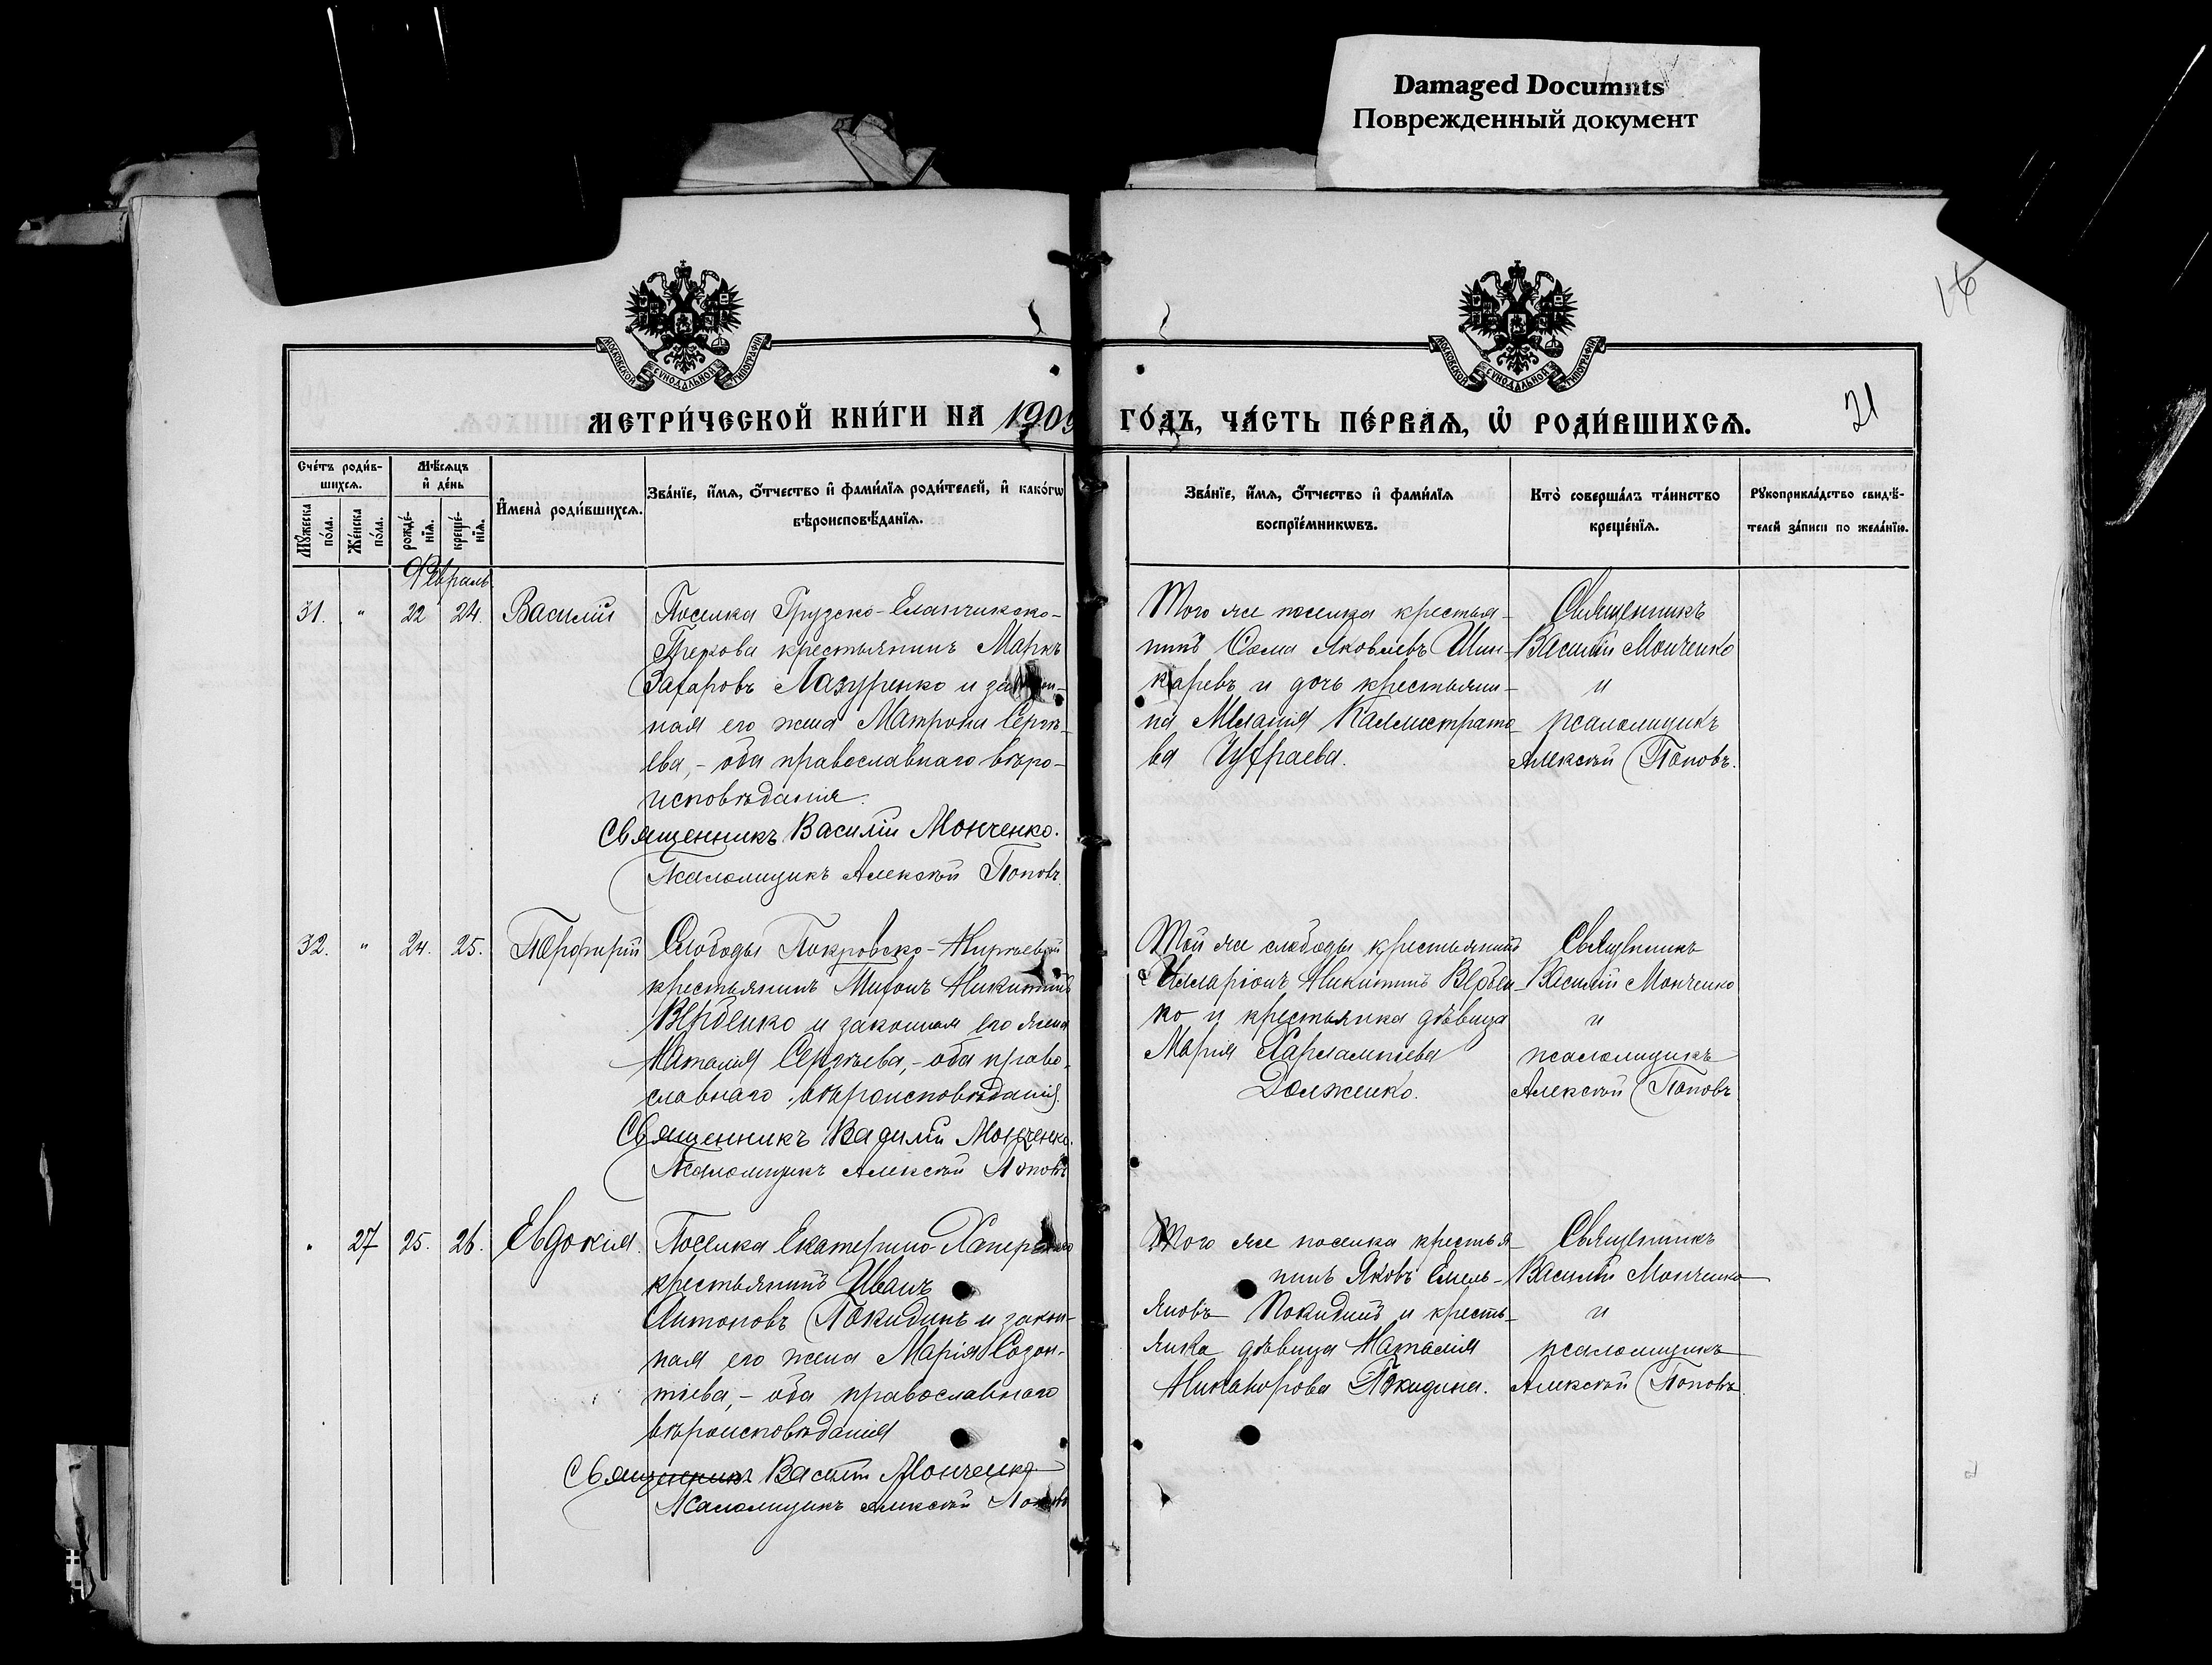 Damaged Documnts
Поврежденный документ
16
МОСКОВСКОЙ СѴНОДАЛЬНОЙ ТИПОГРАФІИ
МОСКОВСКОЙ СѴНОДАЛЬНОЙ ТИПОГРАФІИ
МЕТРИ́ЧЕСКОЙ КНИ́ГИ НА 1909 ГО́ДЪ, ЧА́СТЬ ПЕ́РВАѦ, Ѡ҆ РОДИ́ВШИХСѦ.
21
Сче́тъ роди́в-
шихсѧ.
Мꙋ́жеска по́ла.
Же́нска по́ла.
Мѣ́сѧцъ
и҆ де́нь
рожде́-
нїѧ.
креще́-
нїѧ.
И҆мена̀ роди́вшихсѧ.
Зва́нїе, и҆́мѧ, ѻ҆́тчество и҆ фами́лїѧ роди́телей, и҆ како́гѡ
вѣроисповѣ́данїѧ.
Зва́нїе, и҆́мѧ, ѻ҆́тчество и҆ фами́лїѧ
воспрїе́мникѡвъ.
Кто̀ соверша́лъ та́инство
креще́нїѧ.
Рꙋкоприкла́дство свидѣ́-
телей за́писи по жела́нїю.
Февраль
31. " 22 24. Василій
Поселка Грузско-Еланчикско-
Грекова крестьянинъ Маркъ
Захаровъ Лазуренко и закон-
ная его жена Матрона Сергѣ-
ева, - оба православнаго вѣро-
исповѣданія.
Священникъ Василій Монченко.
Псаломщикъ Алексѣй Поповъ.
Того же поселка крестья-
нинъ Ѳома Яковлевъ Шин-
каревъ и дочь крестьяни-
на Меланія Каллистрато-
ва
Священникъ
Василій Монченко
и
псаломщикъ
Алексѣй Поповъ.
32. " 24. 25. Порфирій
Слободы Покровско-Кирѣевской
крестьянинъ Никитинъ
Вербенко и законная его жена
Наталія Сергѣева, - оба право-
славнаго вѣроисповѣданія.
Священникъ Василій Монченко.
Псаломщикъ Алексѣй Поповъ
Той же слободы крестьянинъ
Илларіонъ Никитинъ Вербен-
ко и крестьянка дѣвица
Марія Харлампіева
Долженко.
Священникъ
Василій Монченко
и
псаломщикъ
Алексѣй Поповъ
" 27 25. 26. Евдокія.
Поселка Екатерино-Хаперскаго
крестьянинъ Иванъ
Антоновъ Покидинъ и закон-
ная его жена Марія Созон-
тіева, - оба православнаго
вѣроисповѣданія
Священникъ Василій Монченко
Псаломщикъ Алексѣй Поповъ
Того же поселка крестья-
нинъ Яковъ Емель-
яновъ Покидинъ и кресть-
янка дѣвица Наталія
Никанорова Покидина.
Священникъ
Василій Монченко
и
псаломщикъ
Алексѣй Поповъ.